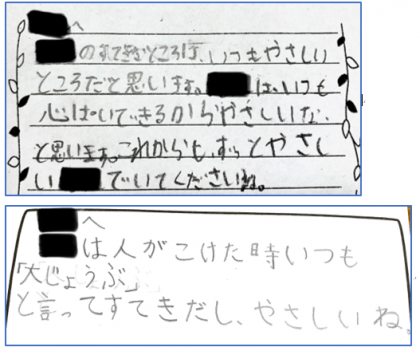 へ
のすてきなところは、いつもやさしい
ところだと思います。 は、いつも
心ぱいできるからやさしいな、
と思います。これからも、ずっとやさし
い でいてくださいね。
へ
は人がこけた時いつも
「大じょうぶ」
と言ってすてきだし、やさしいね。